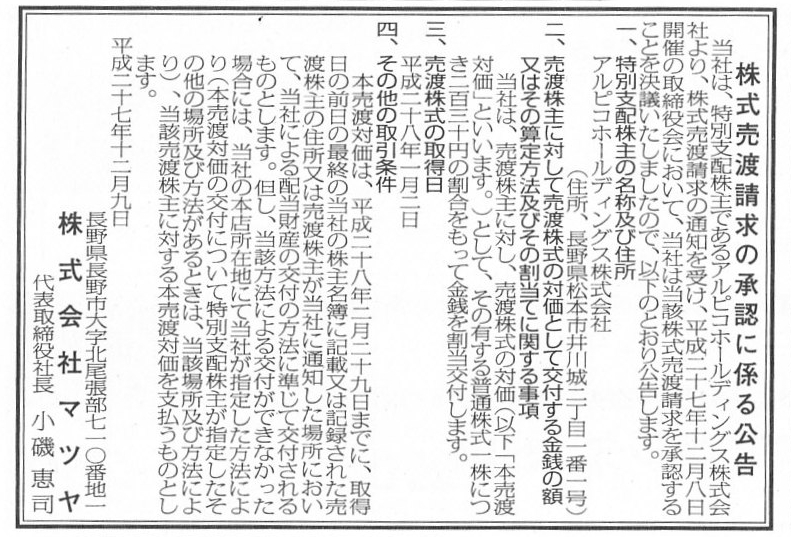 株式売渡請求の承認に係る公告
当社は、特別支配株主であるアルピコホールディングス株式会
社より、株式売渡請求の通知を受け、平成二十七年十二月八日
開催の取締役会において、当社は当該株式売渡請求を承認する
ことを決議いたしましたので、以下のとおり公告します。
一、特別支配株主の名称及び住所
アルピコホールディングス株式会社
(住所、長野県松本市井川城二丁目一番一号)
二、売渡株主に対して売渡株式の対価として交付する金銭の額
又はその算定方法及びその割当てに関する事項
当社は、売渡株主に対し、売渡株式の対価(以下「本売渡
対価」といいます。)として、その有する普通株式一株につ
き二百三十円の割合をもって金銭を割当交付します。
三、売渡株式の取得日
平成二十八年一月二日
四、その他の取引条件
本売渡対価は、平成二十八年二月二十九日までに、取得
日の前日の最終の当社の株主名簿に記載又は記録された売
渡株主の住所又は売渡株主が当社に通知した場所におい
て、当社による配当財産の交付の方法に準じて交付される
ものとします。但し、当該方法による交付ができなかった
場合には、当社の本店所在地にて当社が指定した方法によ
り(本売渡対価の交付について特別支配株主が指定したそ
の他の場所及び方法があるときは、当該場所及び方法によ
り)、当該売渡株主に対する本売渡対価を支払うものとし
ます。
平成二十七年十二月九日
長野県長野市大字北尾張部七一〇番地一
株式会社マツヤ
代表取締役社長 小磯恵司